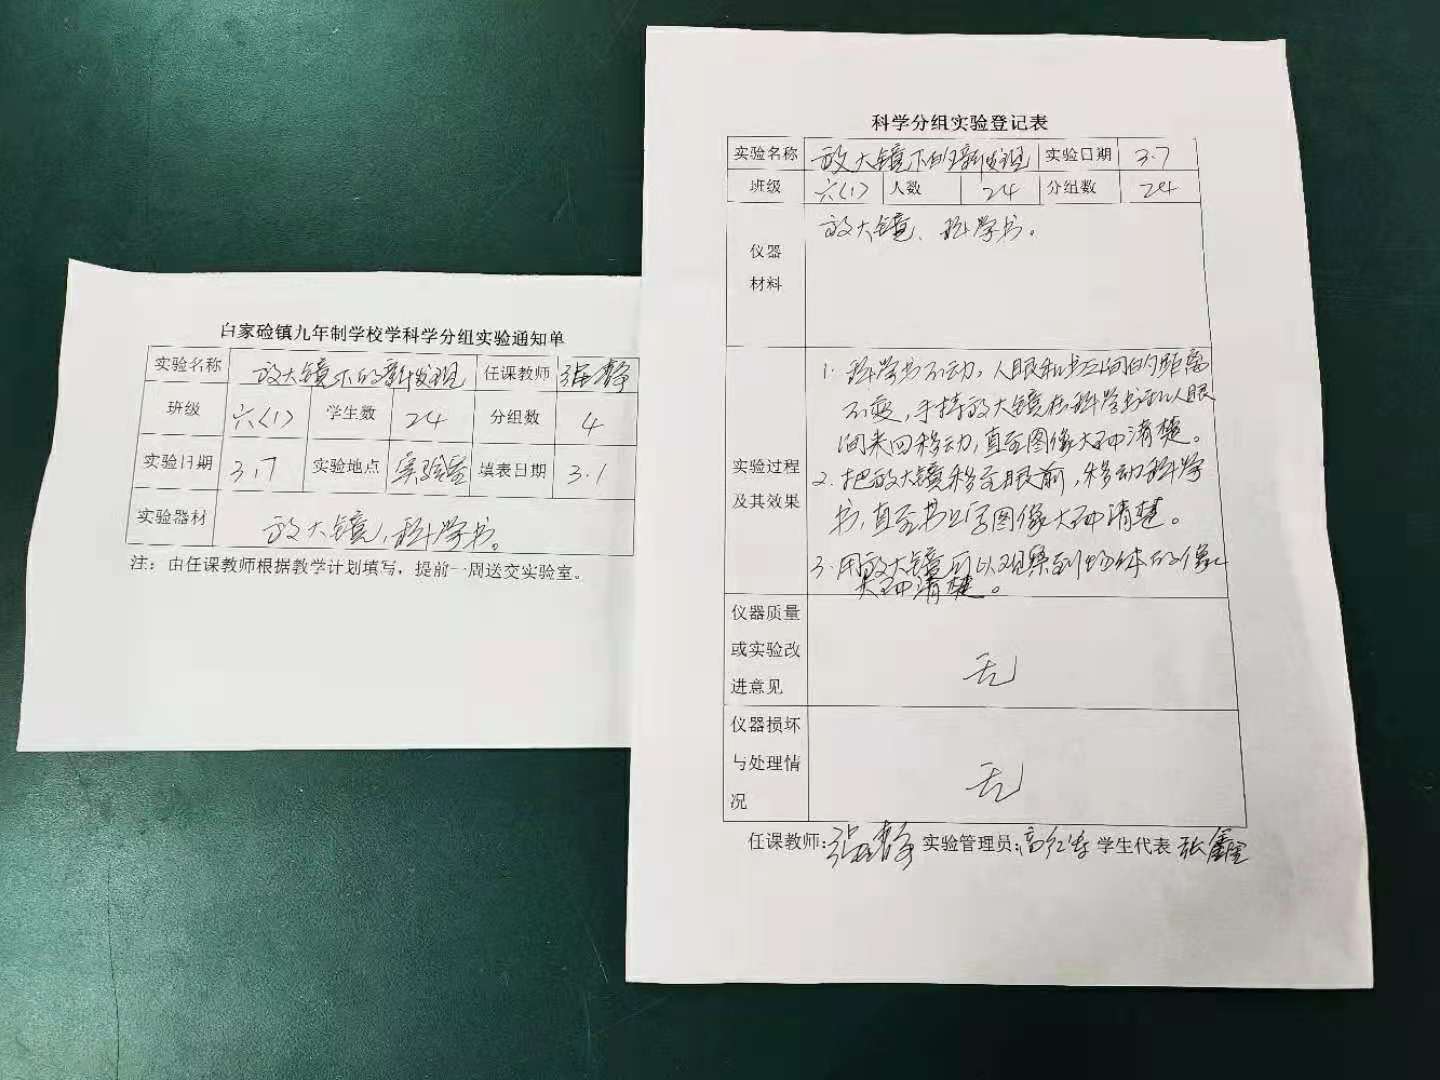 白家硷镇九年制学校学科学分组实验通知单
实验名称 放大镜下的新发现 任课教师 张静
班级 六(1) 学生数 24 分组数 4
实验日期 3.7 实验地点 实验室 填表日期 3.1
实验器材 放大镜、科学书。
注：由任课教师根据教学计划填写，提前一周送交实验室。
科学分组实验登记表
实验名称 放大镜下的新发现 实验日期 3.7
班级 六(1) 人数 24 分组数 24
仪器
材料
放大镜、科学书。
实验过程
及其效果
1. 科学书不动，人眼和书之间的距离
不变，手持放大镜在科学书和人眼
间来回移动，直至图像大而清楚。
2. 把放大镜移至眼前，移动科学
书，直至书上图像大而清楚。
3. 用放大镜可以观察到物体的像
大而清楚。
仪器质量
或实验改
进意见
无
仪器损坏
与处理情
况
无
任课教师：张静 实验管理员：高红 学生代表 张鑫